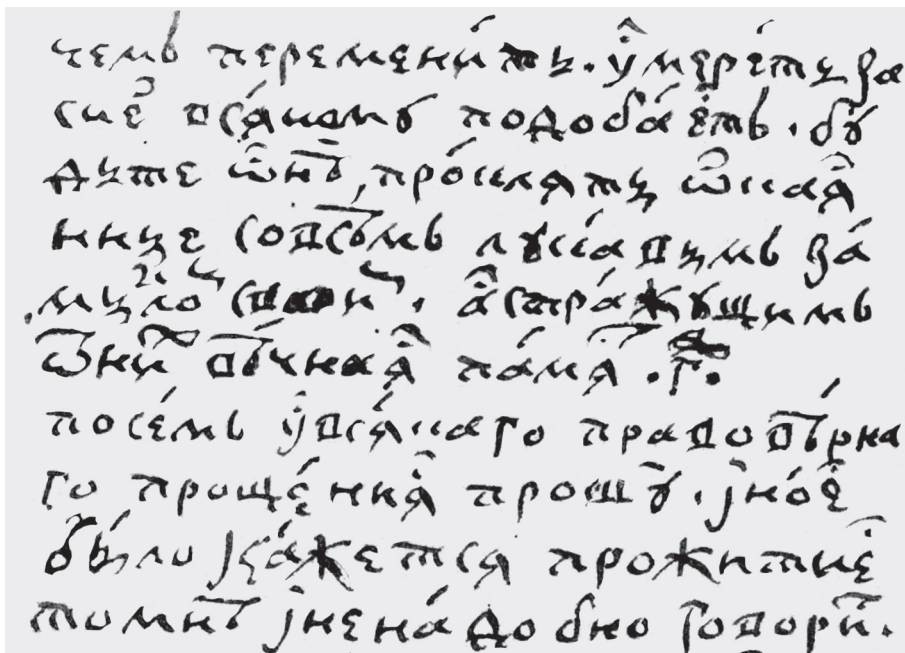 чемъ перемени́ть. у҆мере́ть за
сие҆ вся́кому подоба́етъ. бу́
дьте ѡ҆нѣ, про́кляты ѡ҆кая҆
нние совсѣ́мъ лука́вымъ за́
мысло свои. а҆стра́жущимъ
ѿни́ⷯ вѣ́чная҆ па́мяⷮ .г҃.
посе́мъ у҆вся́каго правовѣ́рна
го проще́ния҆ прошу̀. јно́е҆
бы́ло јка́жется прожитие҆
томнѣ јнена́добно говори́ⷮ.